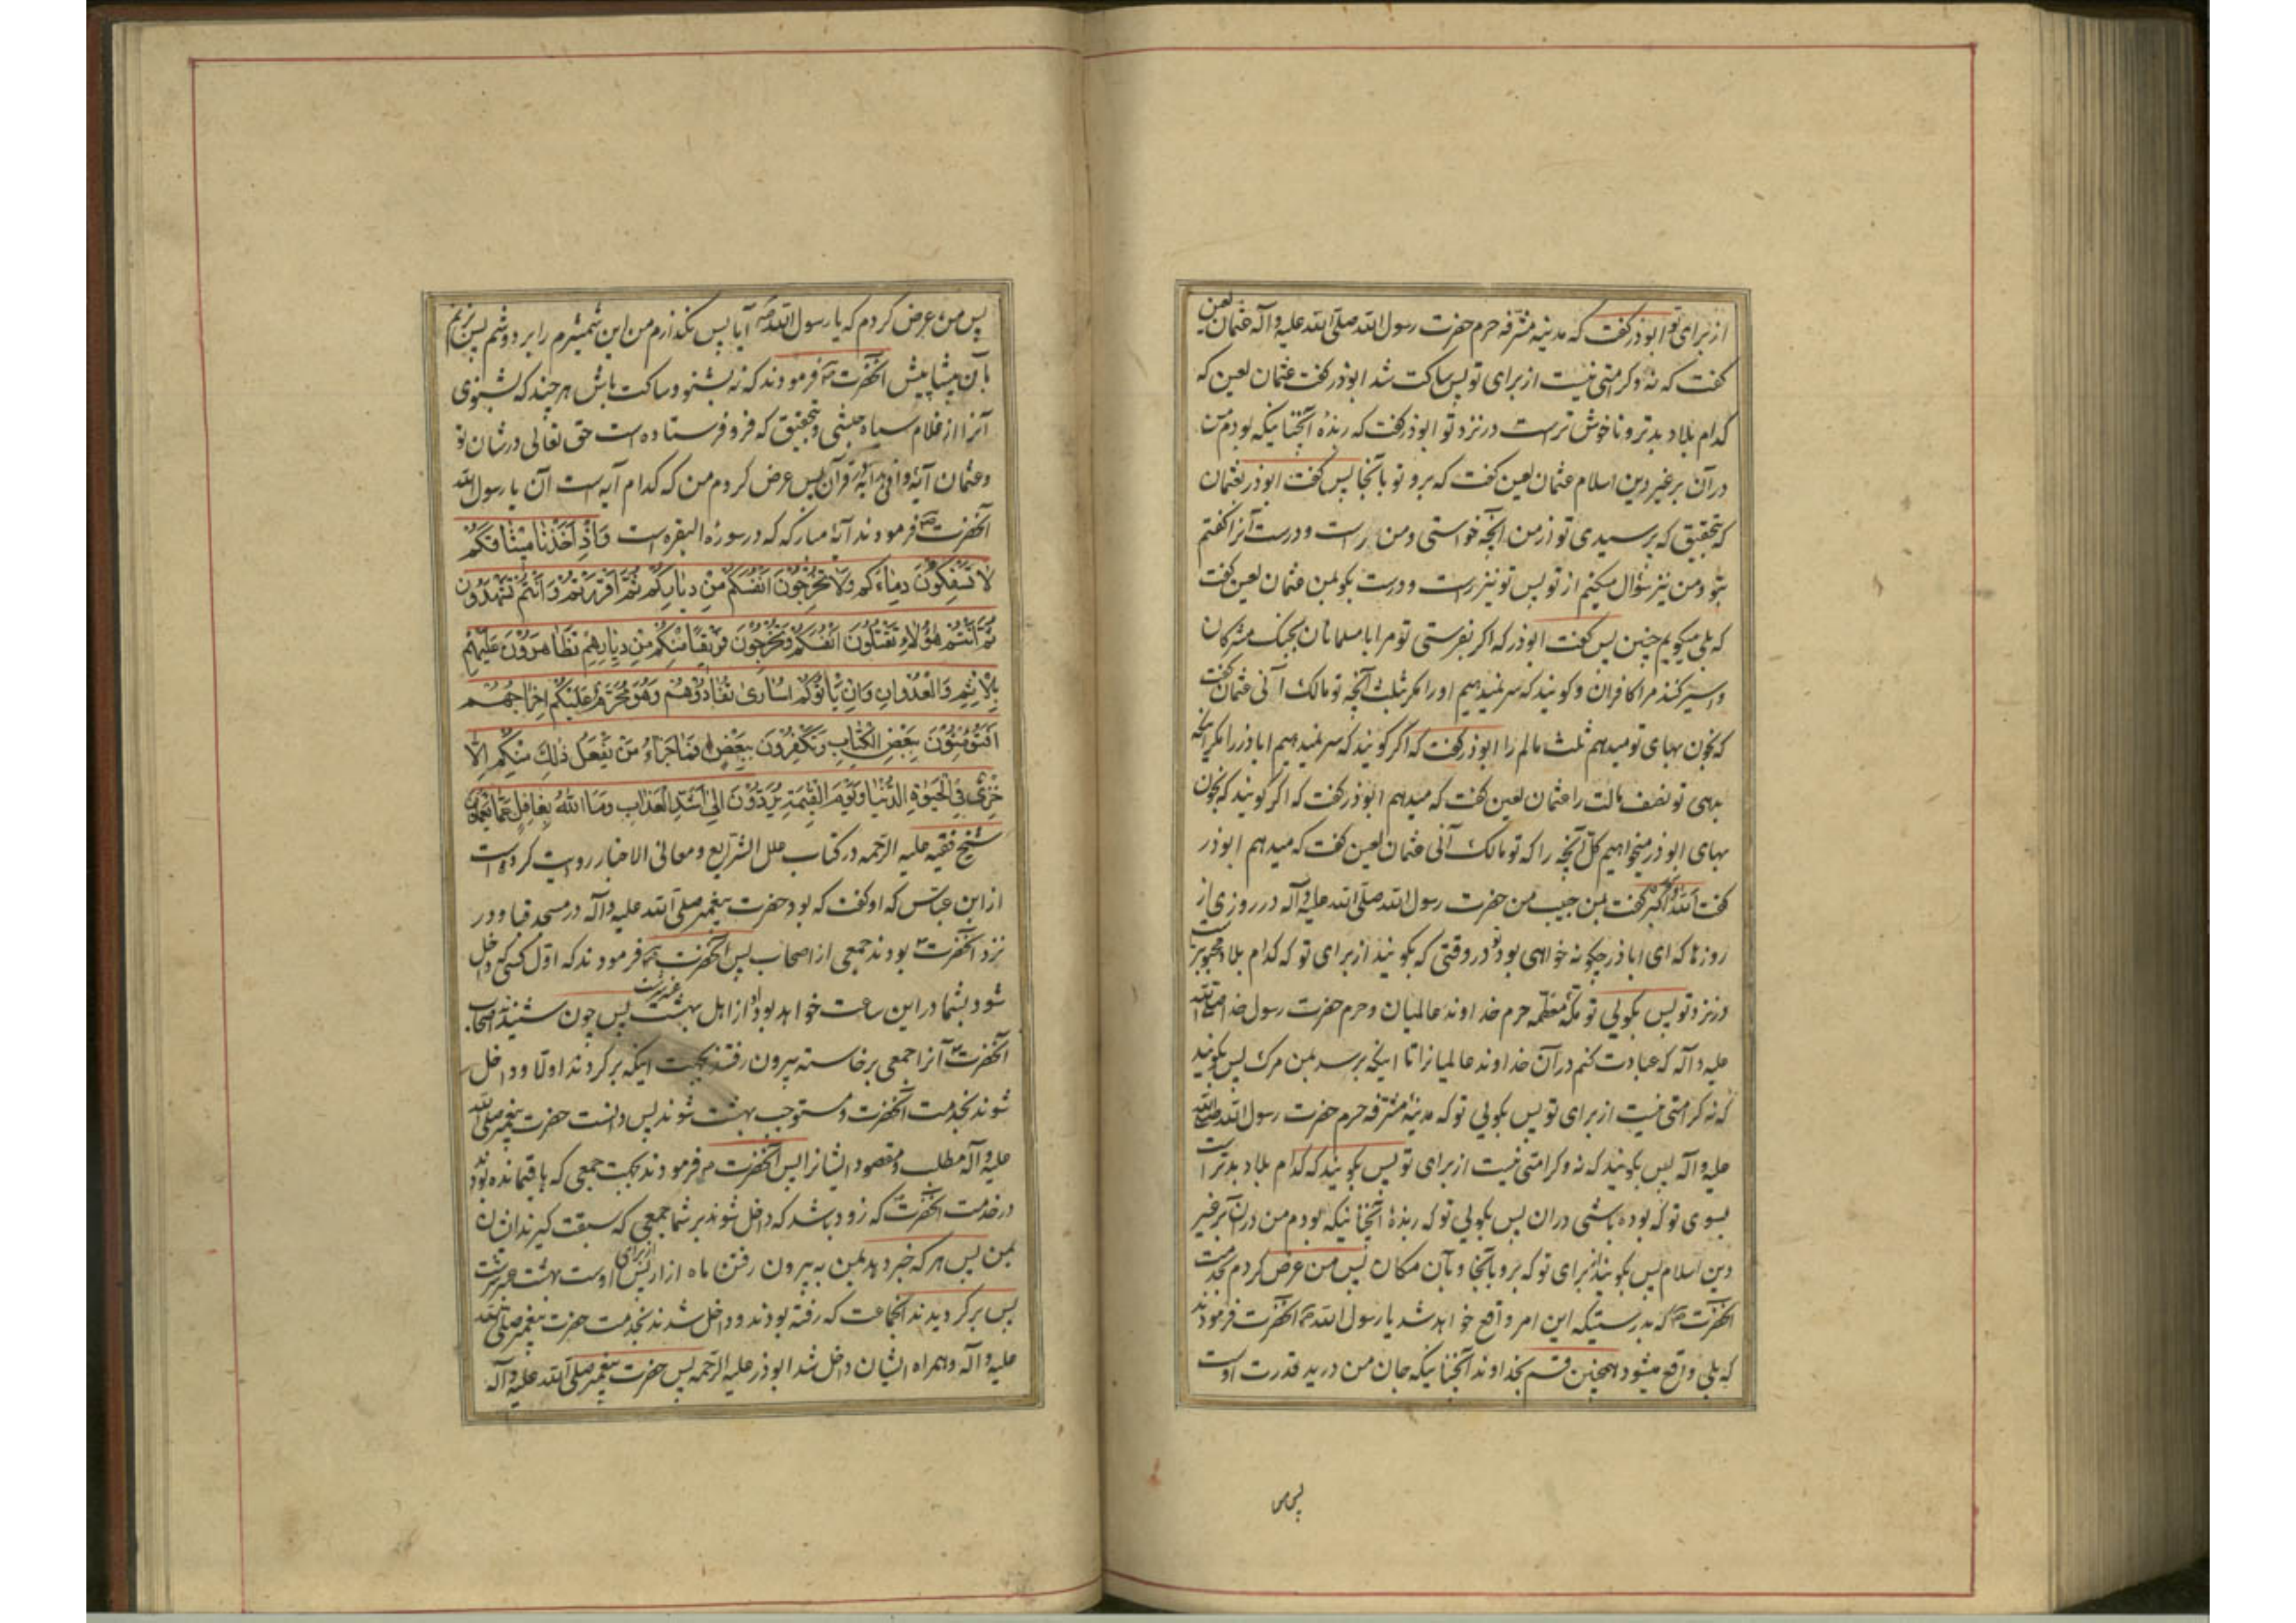 از برای تو ابوذر گفت که مدینه مشرفه حرم حضرت رسول الله صلی الله علیه و آله عثمان لعین
گفت که نه و کرامتی نیست از برای تو پس ساکت شد ابوذر گفت عثمان لعین که
کدام بلاد بدتر و ناخوش تر است در نزد تو ابوذر گفت که ربذه آنچنانیکه بودم من
در آن بر غیر دین اسلام عثمان لعین گفت که برو تو بآنجا پس گفت ابوذر بعثمان
که بتحقیق که پرسیدی تو از من آنچه خواستی و من راست و درست آنرا گفتم
بتو و من نیز سؤال میکنم از تو پس تو نیز راست و درست بگو بمن عثمان لعین گفت
که بلی میگویم چنین پس گفت ابوذر که اگر بفرستی تو مرا با مسلمانان بجنگ مشرکان
و اسیر کنند مرا کافران و گویند که سر نمیدهیم او را مگر بثلث آنچه تو مالک آنی عثمان گفت
که بخون بهای تو میدهم ثلث مالم را ابوذر گفت که اگر گویند که سر نمیدهیم اباذر را مگر اینکه
بدهی تو نصف مالت را عثمان لعین گفت که میدهم ابوذر گفت که اگر گویند که بخون
بهای ابوذر میخواهیم کل آنچه را که تو مالک آنی عثمان لعین گفت که میدهم ابوذر
گفت الله اکبر گفت بمن حبیب من حضرت رسول الله صلی الله علیه و آله در روزی از
روزها که ای اباذر چگونه خواهی بود تو در وقتی که بگویند از برای تو که کدام بلاد محبوبتر است
در نزد تو پس بگویی تو مکه معظمه حرم خداوند عالمیان و حرم حضرت رسول خدا صلی الله
علیه و آله که عبادت کنم در آن خداوند عالمیانرا تا اینکه برسد بمن مرگ پس بگویند
که نه کرامتی نیست از برای تو پس بگویی تو که مدینه مشرفه حرم حضرت رسول الله صلی الله
علیه و آله پس بگویند که نه و کرامتی نیست از برای تو پس بگویند که کدام بلاد بدتر است
بسوی تو که بوده باشی در آن پس بگویی تو که ربذه آنچنانیکه بودم من در آن بر غیر
دین اسلام پس بگویند از برای تو که برو بآنجا و بآن مکان پس من عرض کردم بخدمت
آنحضرت ص که بدرستیکه این امر واقع خواهد شد یا رسول الله ص آنحضرت فرمودند
که بلی واقع میشود همچنین قسم بخداوند آنچنانیکه جان من در ید قدرت اوست
پس من
پس من عرض کردم که یا رسول الله ص آیا پس نگذارم من این شمشیرم را بر دوشم پس بزنم
بآن پیشاپیش آنحضرت ص فرمودند که نه بشنو و ساکت باش هر چند که بشنوی
آنرا از غلام سیاه حبشی و بتحقیق که فرو فرستاده است حق تعالی در شان تو
و عثمان آیه وافی هدایه قرآن پس عرض کردم من که کدام آیه است آن یا رسول الله
آنحضرت ص فرمودند آیه مبارکه که در سوره البقره است وَاِذْ اَخَذْنا میثاقَکُمْ
لا تَسْفِکُونَ دِماءَکُم وَلا تُخْرِجُونَ اَنْفُسَکُمْ مِنْ دِیارِکُمْ ثُمَّ اَقْرَرْتُمْ وَاَنْتُمْ تَشْهَدُونَ
ثُمَّ اَنْتُمْ هؤُلاءِ تَقْتُلُونَ اَنْفُسَکُمْ وَتُخْرِجُونَ فَریقًا مِنْکُمْ مِنْ دِیارِهِمْ تَظاهَرُونَ عَلَیْهِمْ
بِالْاِثْمِ وَالْعُدْوانِ وَاِنْ یَأْتُوکُمْ اُساری تُفادُوهُمْ وَهُوَ مُحَرَّمٌ عَلَیْکُمْ اِخْراجُهُمْ
اَفَتُؤْمِنُونَ بِبَعْضِ الْکِتابِ وَتَکْفُرُونَ بِبَعْضٍ فَما جَزاءُ مَنْ یَفْعَلُ ذلِکَ مِنْکُمْ اِلّا
خِزْیٌ فِی الْحَیوةِ الدُّنْیا وَیَوْمَ الْقِیمَةِ یُرَدُّونَ اِلی اَشَدِّ الْعَذابِ وَمَا اللهُ بِغافِلٍ عَمّا تَعْمَلُونَ
شیخ فقیه علیه الرحمه در کتاب علل الشرایع و معانی الاخبار روایت کرده است
از ابن عباس که او گفت که بود حضرت پیغمبر صلی الله علیه و آله در مسجد قبا و در
نزد آنحضرت بودند جمعی از اصحاب پس آنحضرت ص فرمودند که اول کسی که داخل
شود بشما در این ساعت خواهد بود او از اهل بهشت عنبر سرشت پس چون شنیدند اصحاب
آنحضرت آنرا جمعی برخاسته بیرون رفتند بجهت اینکه برگردند اولا و داخل
شوند بخدمت آنحضرت و مستوجب بهشت شوند پس دانست حضرت پیغمبر صلی الله
علیه و آله مطلب و مقصود ایشانرا پس آنحضرت ص فرمودند بجهت جمعی که باقیمانده بودند
در خدمت آنحضرت که زود باشد که داخل شوند بر شما جمعی که سبقت گیرند ایشان
بمن پس هر که خبر دهد بمن به بیرون رفتن ماه آزار پس از برای اوست بهشت عنبر سرشت
پس برگردیدند آنجماعت که رفته بودند و داخل شدند بخدمت حضرت پیغمبر صلی الله
علیه و آله و همراه ایشان داخل شد ابوذر علیه الرحمه پس حضرت پیغمبر صلی الله علیه و آله